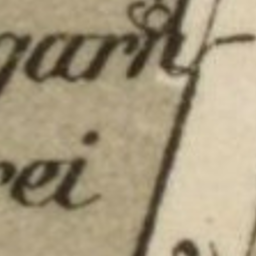 garn
rei